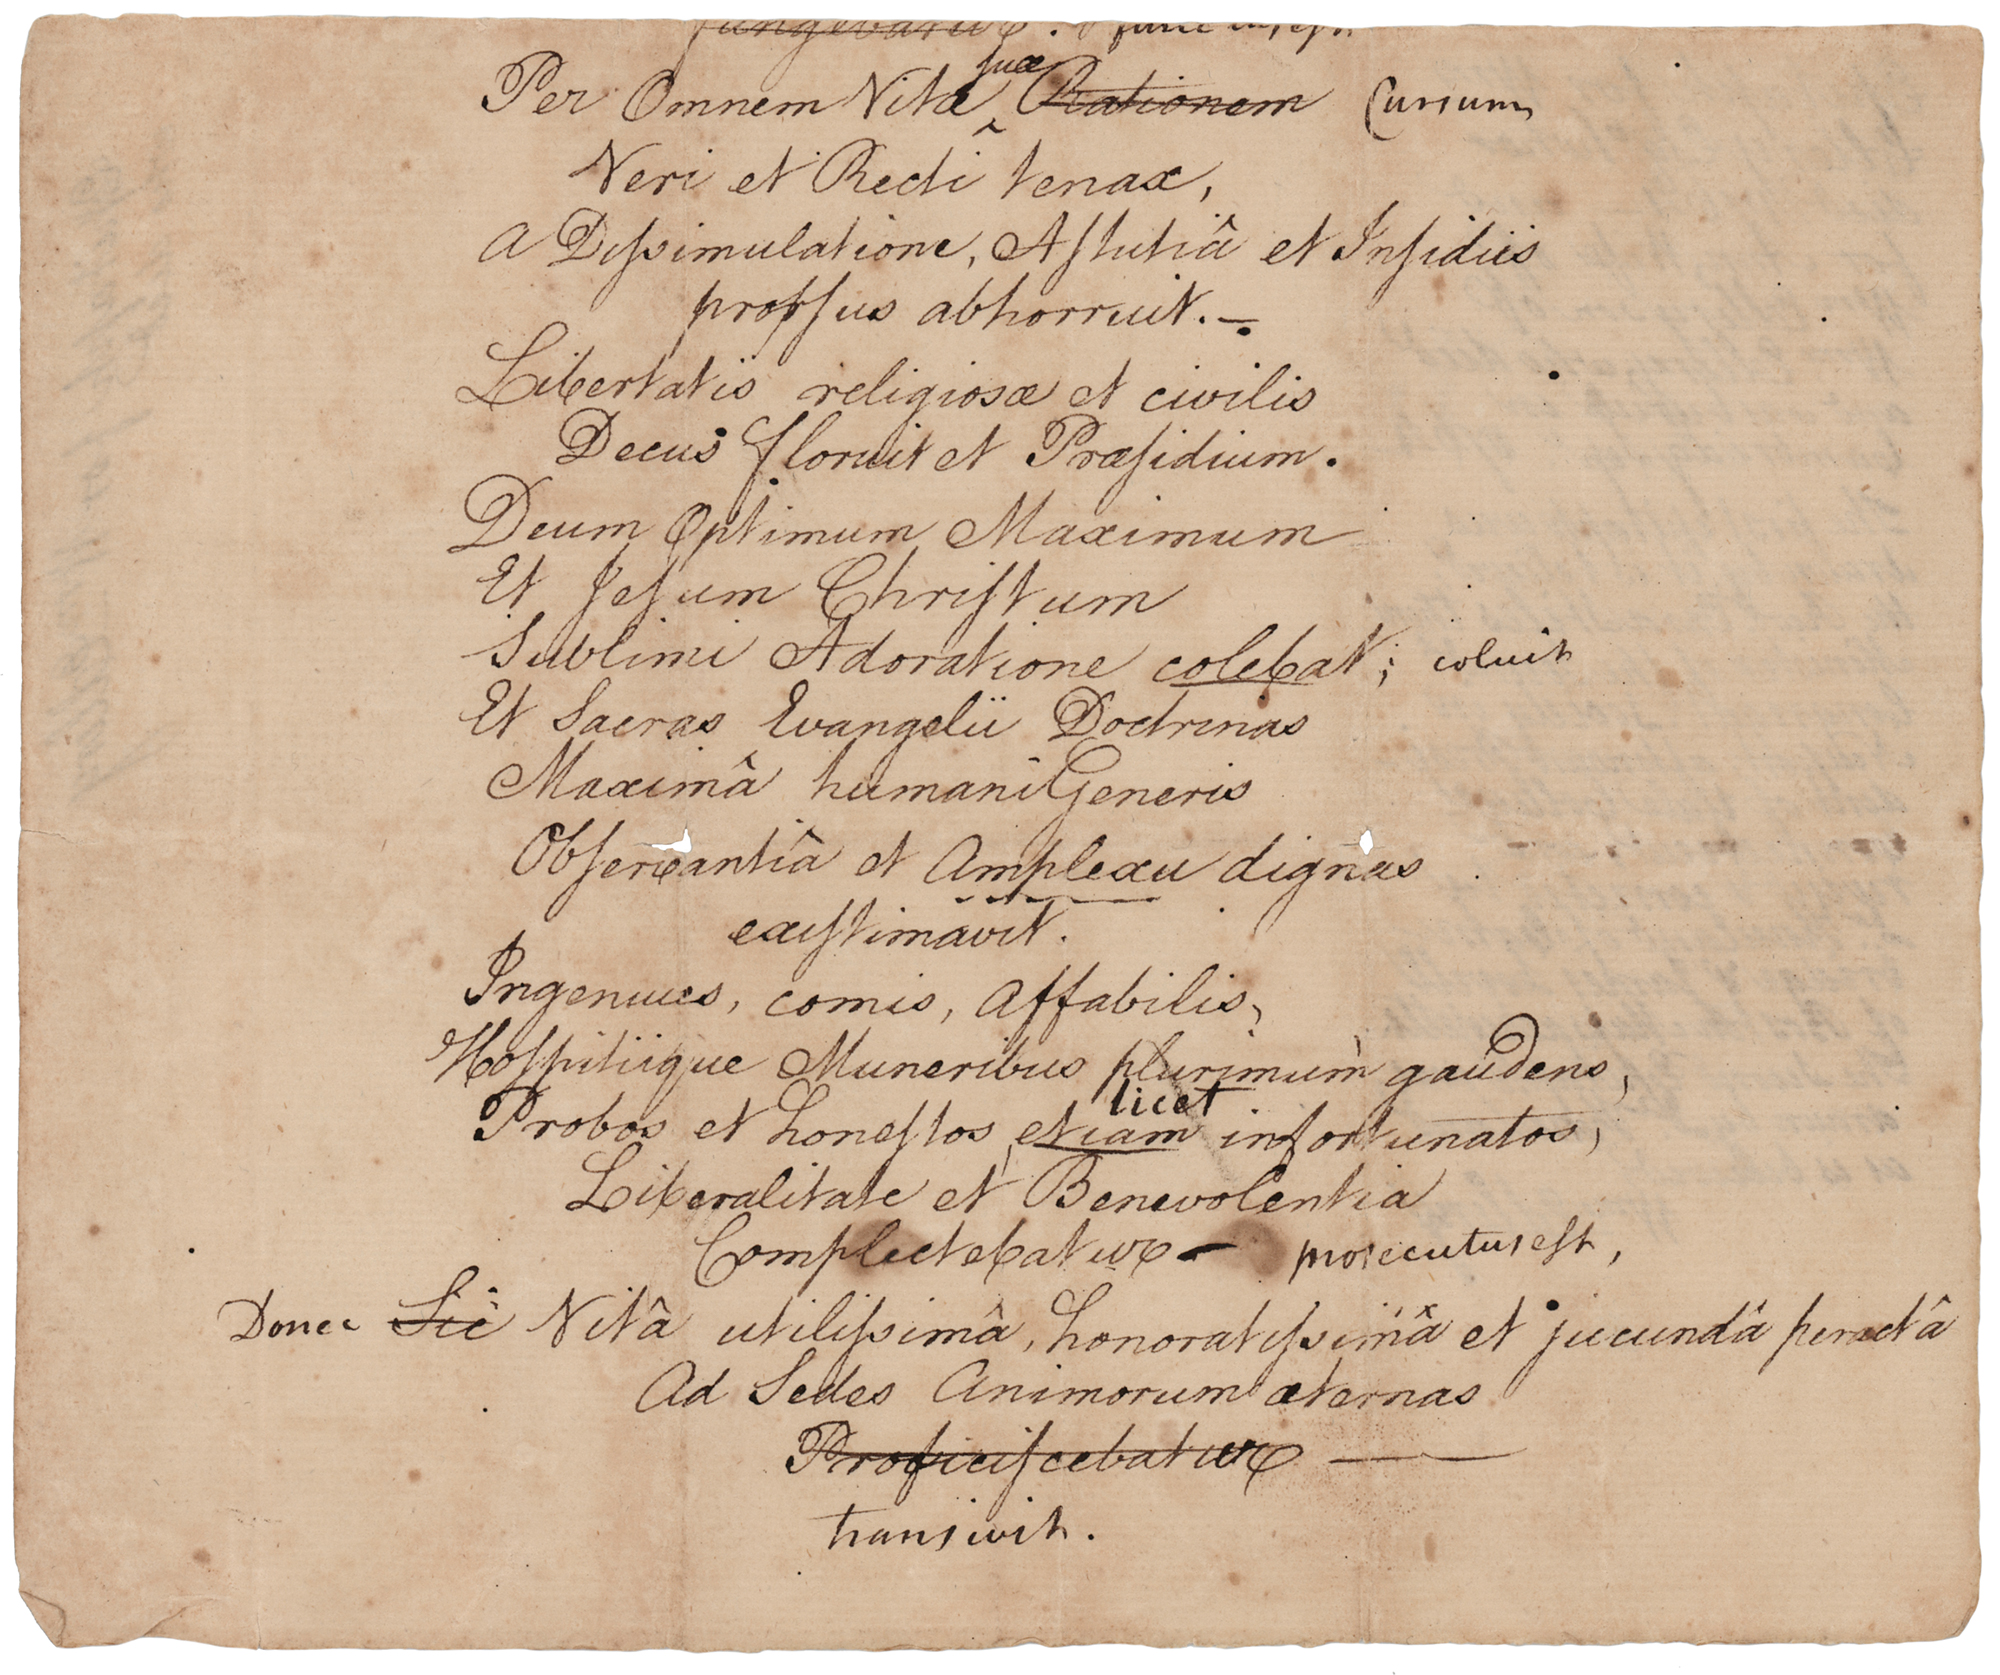 fungebatur. functus est.
Per Omnem Vitæ suæ Rationem Cursum
Veri et Recti tenax,
A Dissimulatione, Astutiâ et Insidiis
prorsus abhorruit.—
Libertatis religiosæ et civilis
Decus floruit et Præsidium.
Deum Optimum Maximum
Et Jesum Christum
Sublimi Adoratione colebat; coluit
Et Sacras Evangelii Doctrinas
Maximâ humani Generis
Observantiâ et Amplexu dignas
existimavit.
Ingenuus, comis, Affabilis,
Hospitiique Muneribus plurimum gaudens,
licet
Probos et honestos, etiam infortunatos,
Liberalitate et Benevolentia
Complectebatur — prosecutus est,
Donec Sic Vitâ utilissimâ, honoratissimâ et jucundâ peractâ
Ad Sedes Animorum æternas
Proficiscebatur —
transivit.